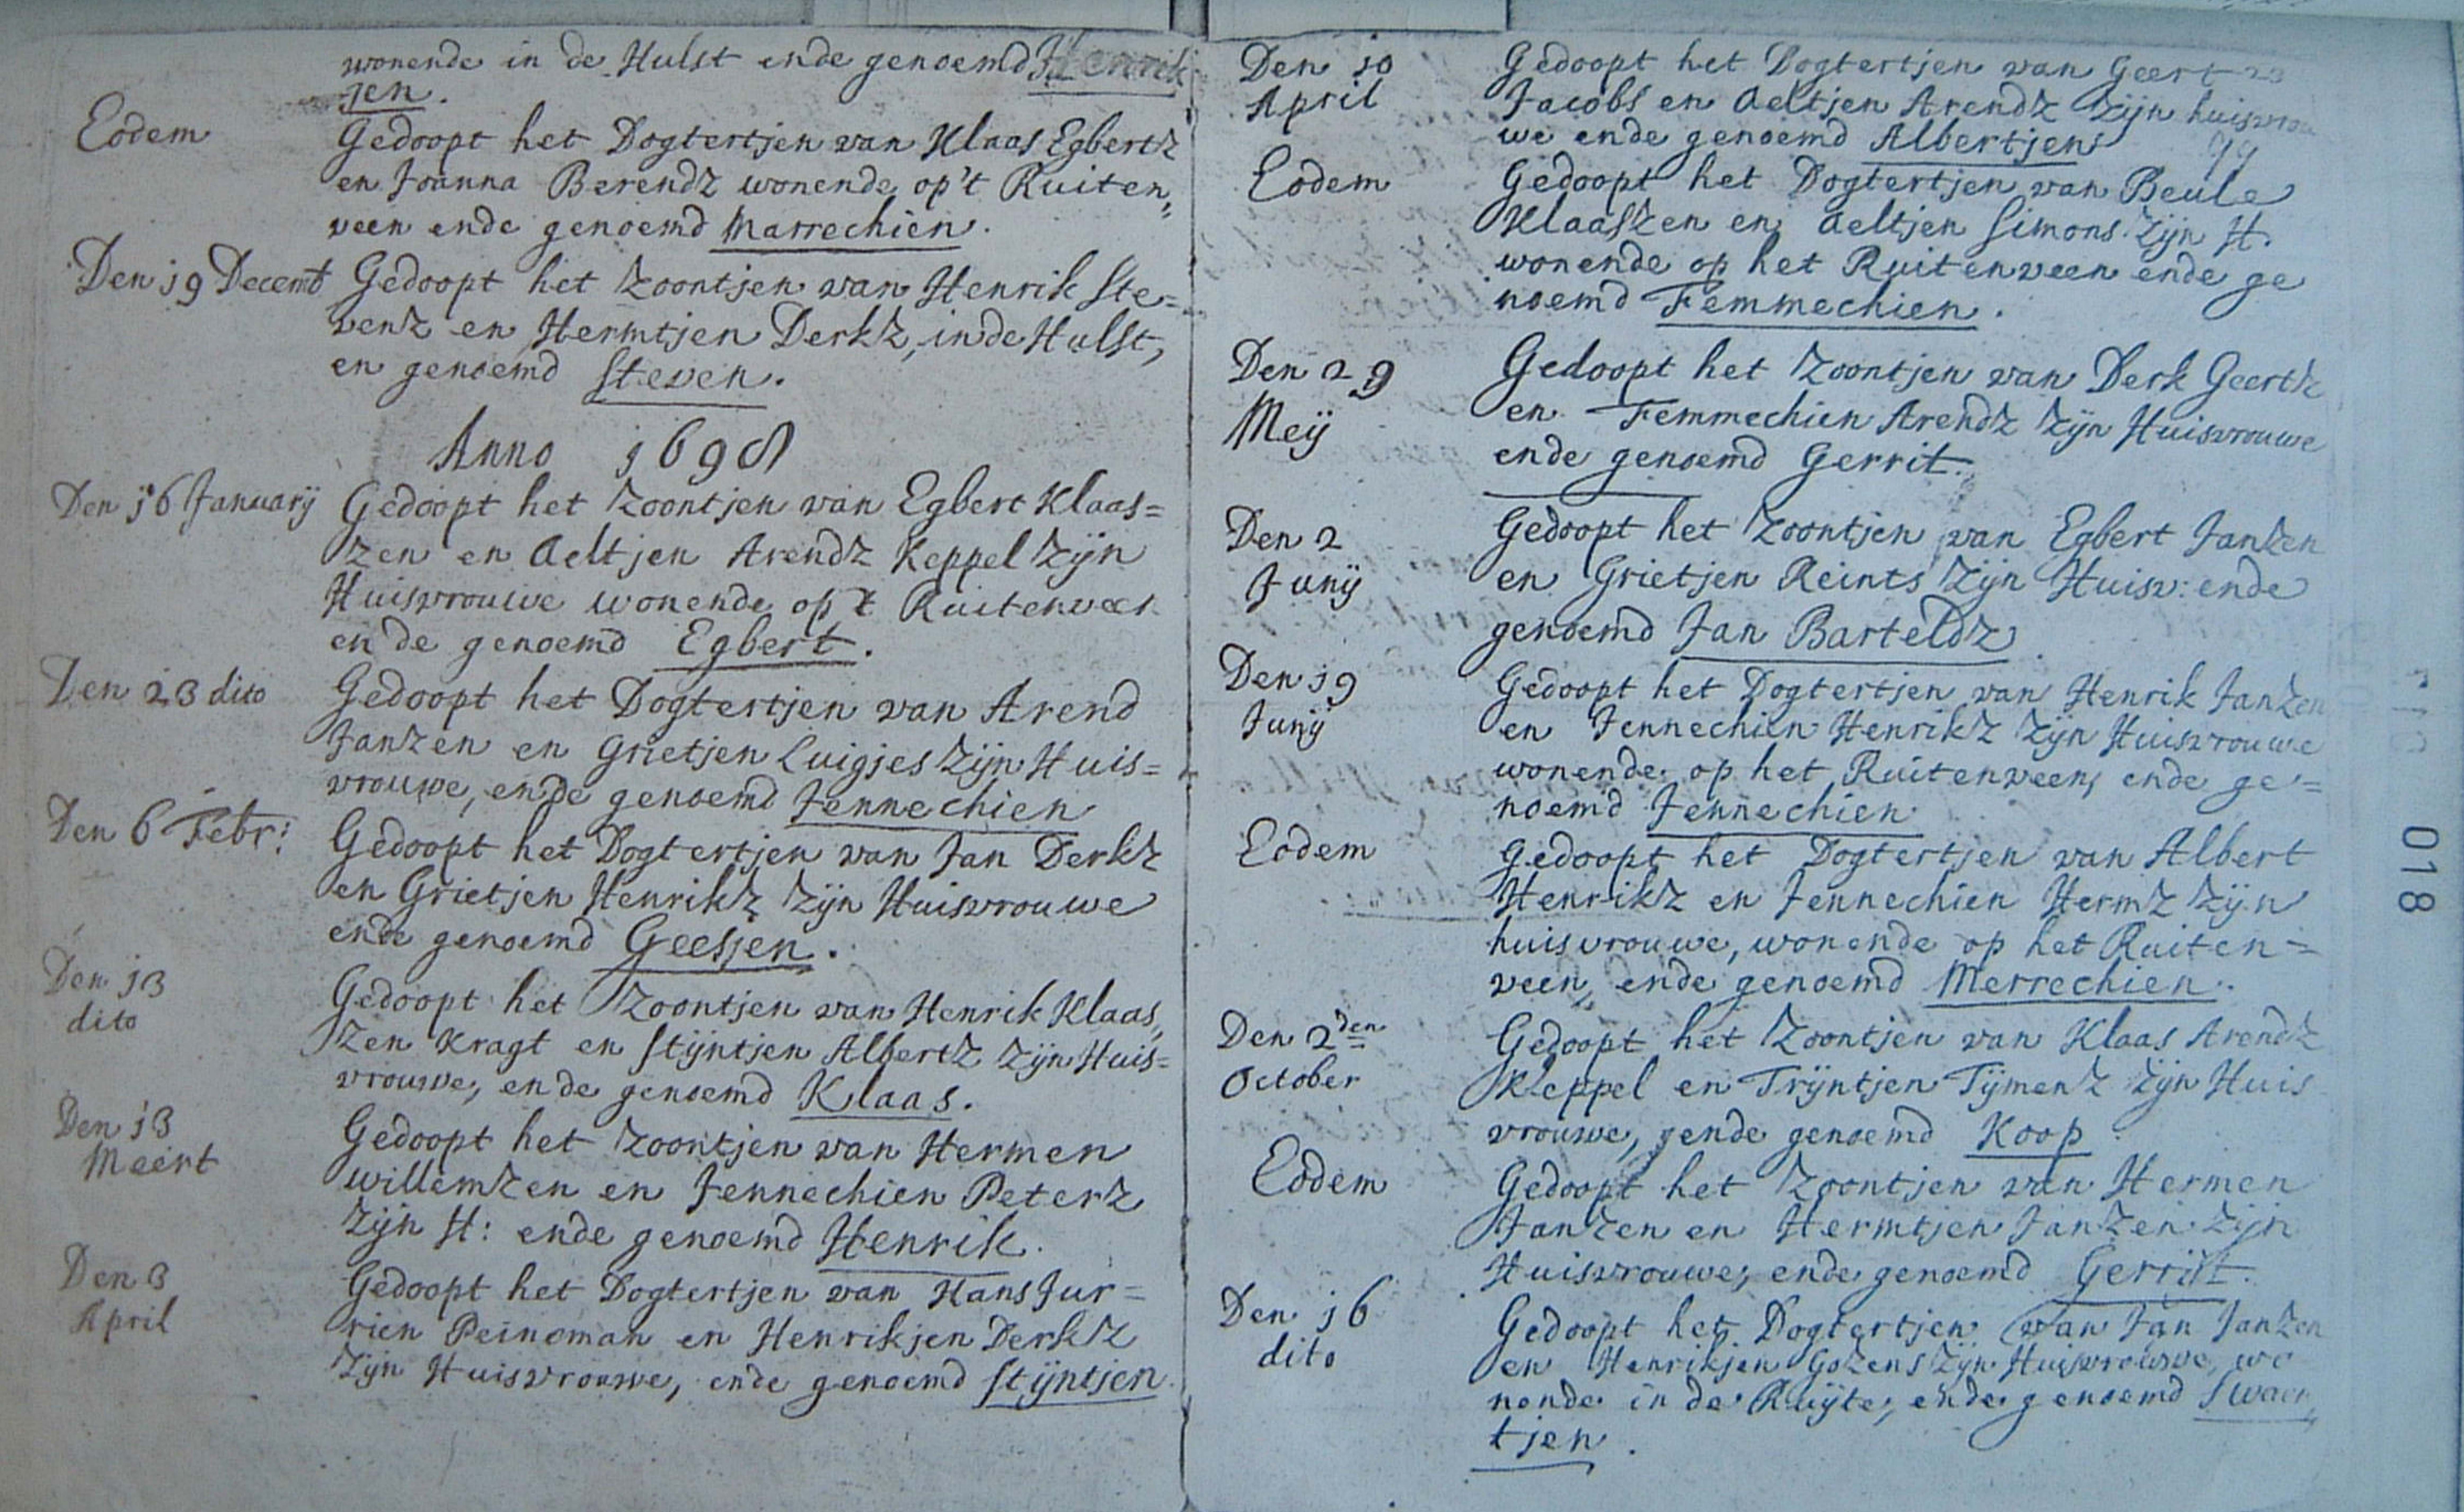 wonende in de Hulst ende genoemd Henrik
jen.
Eodem
Gedoopt het Dogtertjen van Klaas Egbertz
en Joanna Berendz wonende op't Ruiten„
veen ende genoemd Marrechien.
Den 19 Decemb
Gedoopt het Zoontjen van Henrik Ste=
venz en Hermtjen Derkz, in de Hulst,
en genoemd Steven.
Anno 1698
Den 16 Januarij
Gedoopt het Zoontjen van Egbert Klaas=
zen en Aeltjen Arendz Keppel Zijn
Huisvrouwe wonende op 't Ruitenveen
ende genoemd Egbert.
Den 23 dito
Gedoopt het Dogtertjen van Arend
Janzen en Grietjen Luigjes Zijn Huis=
vrouwe, ende genoemd Jennechien
Den 6 Febr:
Gedoopt het Dogtertjen van Jan Derkz
en Grietjen Henrikz Zijn Huisvrouwe
ende genoemd Geesjen.
Den 13
dito
Gedoopt het Zoontjen van Henrik Klaas„
zen Kragt en Stijntjen Albertz Zijn Huis=
vrouwe, ende genoemd Klaas.
Den 13
Meert
Gedoopt het Zoontjen van Hermen
willemzen en Jennechien Peterz
Zijn H: ende genoemd Henrik.
Den 3
April
Gedoopt het Dogtertjen van Hans Jur=
rien Peinoman en Henrikjen Derkz
Zijn Huisvrouwe, ende genoemd Stijntjen.
Den 10
April
Gedoopt het Dogtertjen van Geert
Jacobs en Aeltjen Arendz Zijn huisvrou
we ende genoemd Albertjen
Eodem
Gedoopt het Dogtertjen van Beule
Klaaszen en Aeltjen Simons Zijn H.
wonende op het Ruitenveen ende ge
noemd Femmechien.
Den 29
Meij
Gedoopt het Zoontjen van Derk Geertz
en Femmechien Arendz Zijn Huisvrouwe
ende genoemd Gerrit.
Den 2
Junij
Gedoopt het Zoontjen van Egbert Janzen
en Grietjen Reints Zijn Huisv: ende
genoemd Jan Barteldz
Den 19
Junij
Gedoopt het Dogtertjen van Henrik Janzen
en Jennechien Henrikz Zijn Huisvrouwe
wonende op het Ruitenveen, ende ge=
noemd Jennechien
Eodem
Gedoopt het Dogtertjen van Albert
Henrikz en Jennechien Hermz Zijn
huisvrouwe, wonende op het Ruiten=
veen, ende genoemd Merrechien.
Den 2den
October
Gedoopt het Zoontjen van Klaas Arendz
Keppel en Trijntjen Tijmenz Zijn Huis
vrouwe, ende genoemd Koop
Eodem
Gedoopt het Zoontjen van Hermen
Janzen en Hermtjen Janzen Zijn
Huisvrouwe, ende genoemd Gerrit.
Den 16
dito
Gedoopt het Dogtertjen van Jan Janzen
en Henrikjen Gozens Zijn Huisvrouwe, wo
nende in de Ruijte, ende genoemd Swaen„
tjen.
018